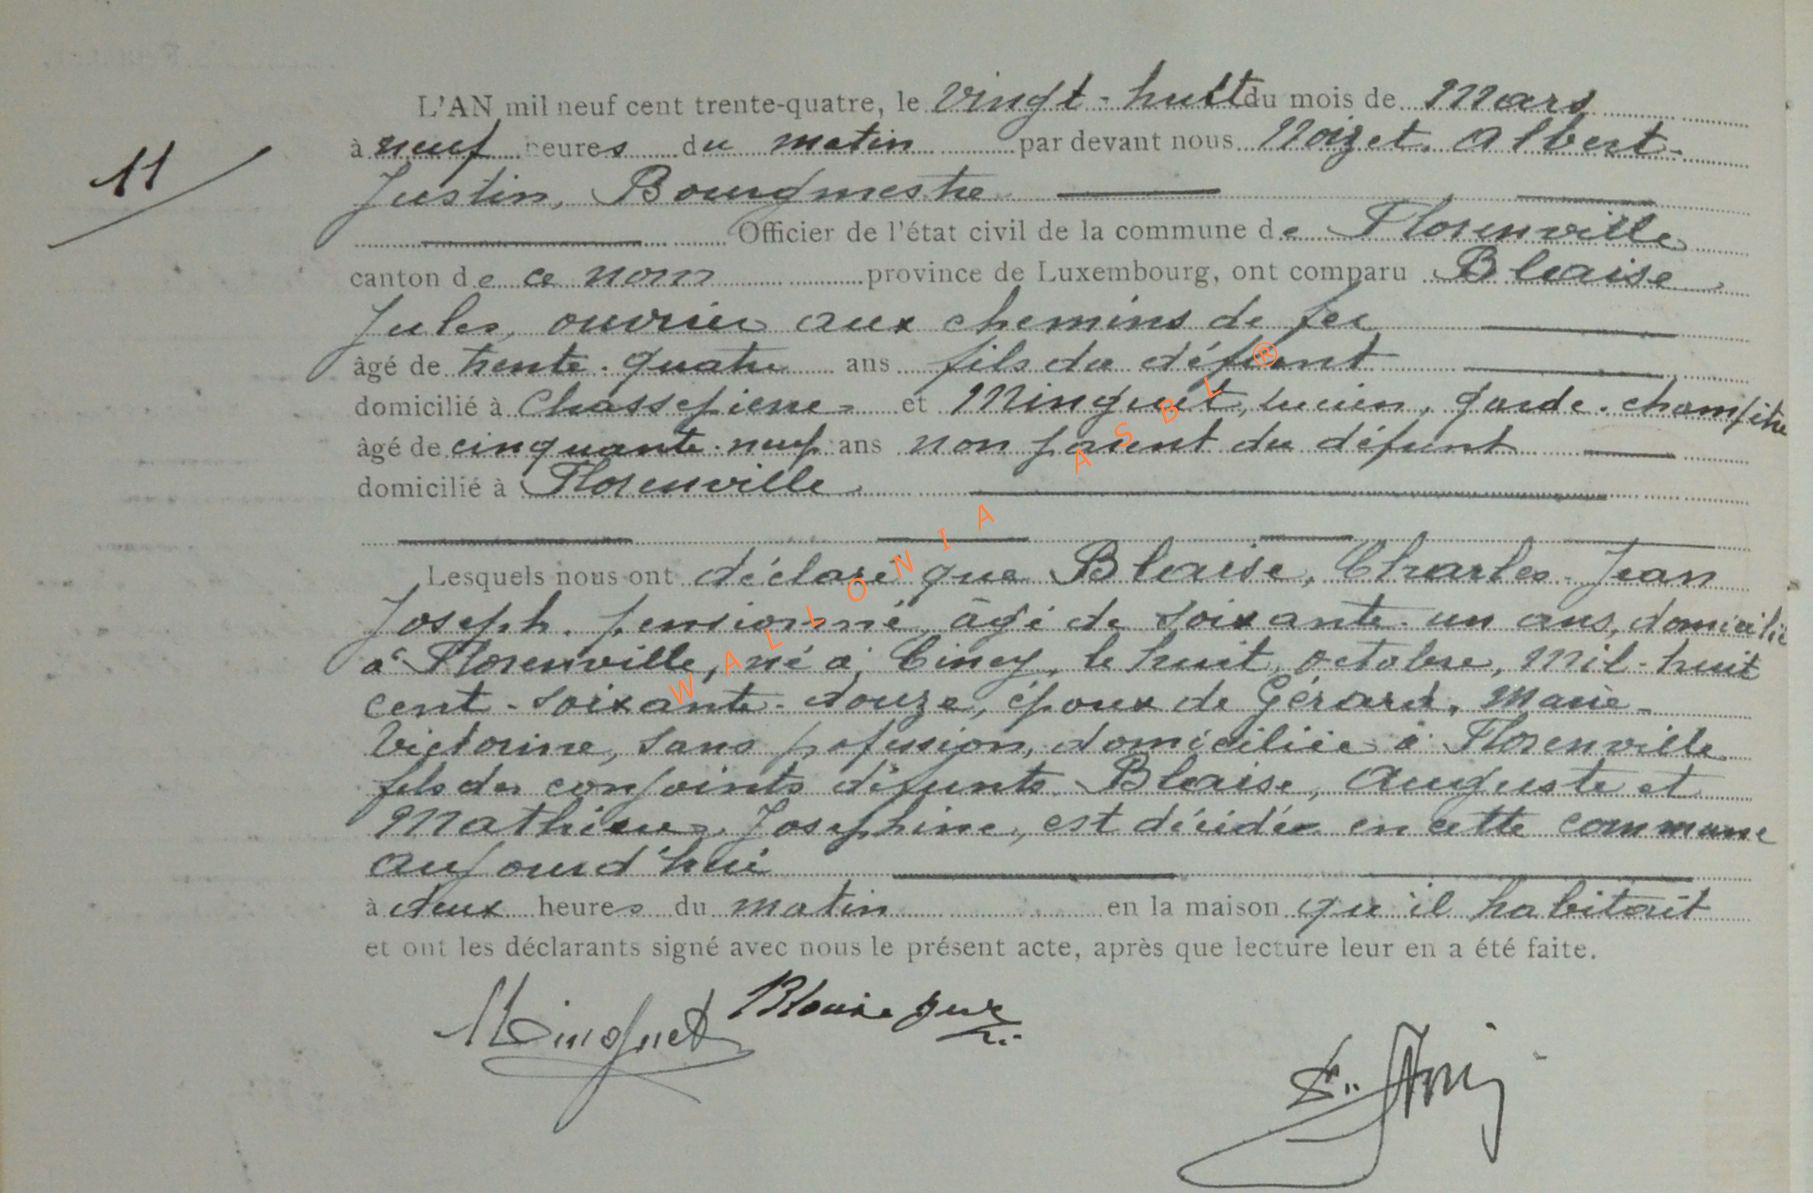 L'AN mil neuf cent trente-quatre, le vingt-huit du mois de Mars
11
à neuf heures du matin par devant nous Noizet. Albert-
Justin, Bourgmestre
Officier de l'état civil de la commune de Florenville
canton de ce nom province de Luxembourg, ont comparu Blaise
Jules, ouvrier aux chemins de fer
âgé de trente-quatre ans fils du défunt
domicilié à Chassepierre et Minguet, Lucien, garde-champêtre
âgé de cinquante-neuf ans non parent du défunt
domicilié à Florenville
Lesquels nous ont déclaré que Blaise, Charles-Jean
Joseph. pensionné, âgé de soixante-un ans, domicilié
à Florenville, né à Ciney, le huit octobre, mil-huit
cent-soixante-douze, époux de Gérard, Marie-
Victorine, sans profession, domiciliée à Florenville
fils des conjoints défunts Blaise, Auguste et
Mathieu, Josephine, est décédé en cette commune
aujourd'hui
à deux heures du matin en la maison qu'il habitait
et ont les déclarants signé avec nous le présent acte, après que lecture leur en a été faite.
Minguet Blaise Jules
WALLONIA ASBL ®